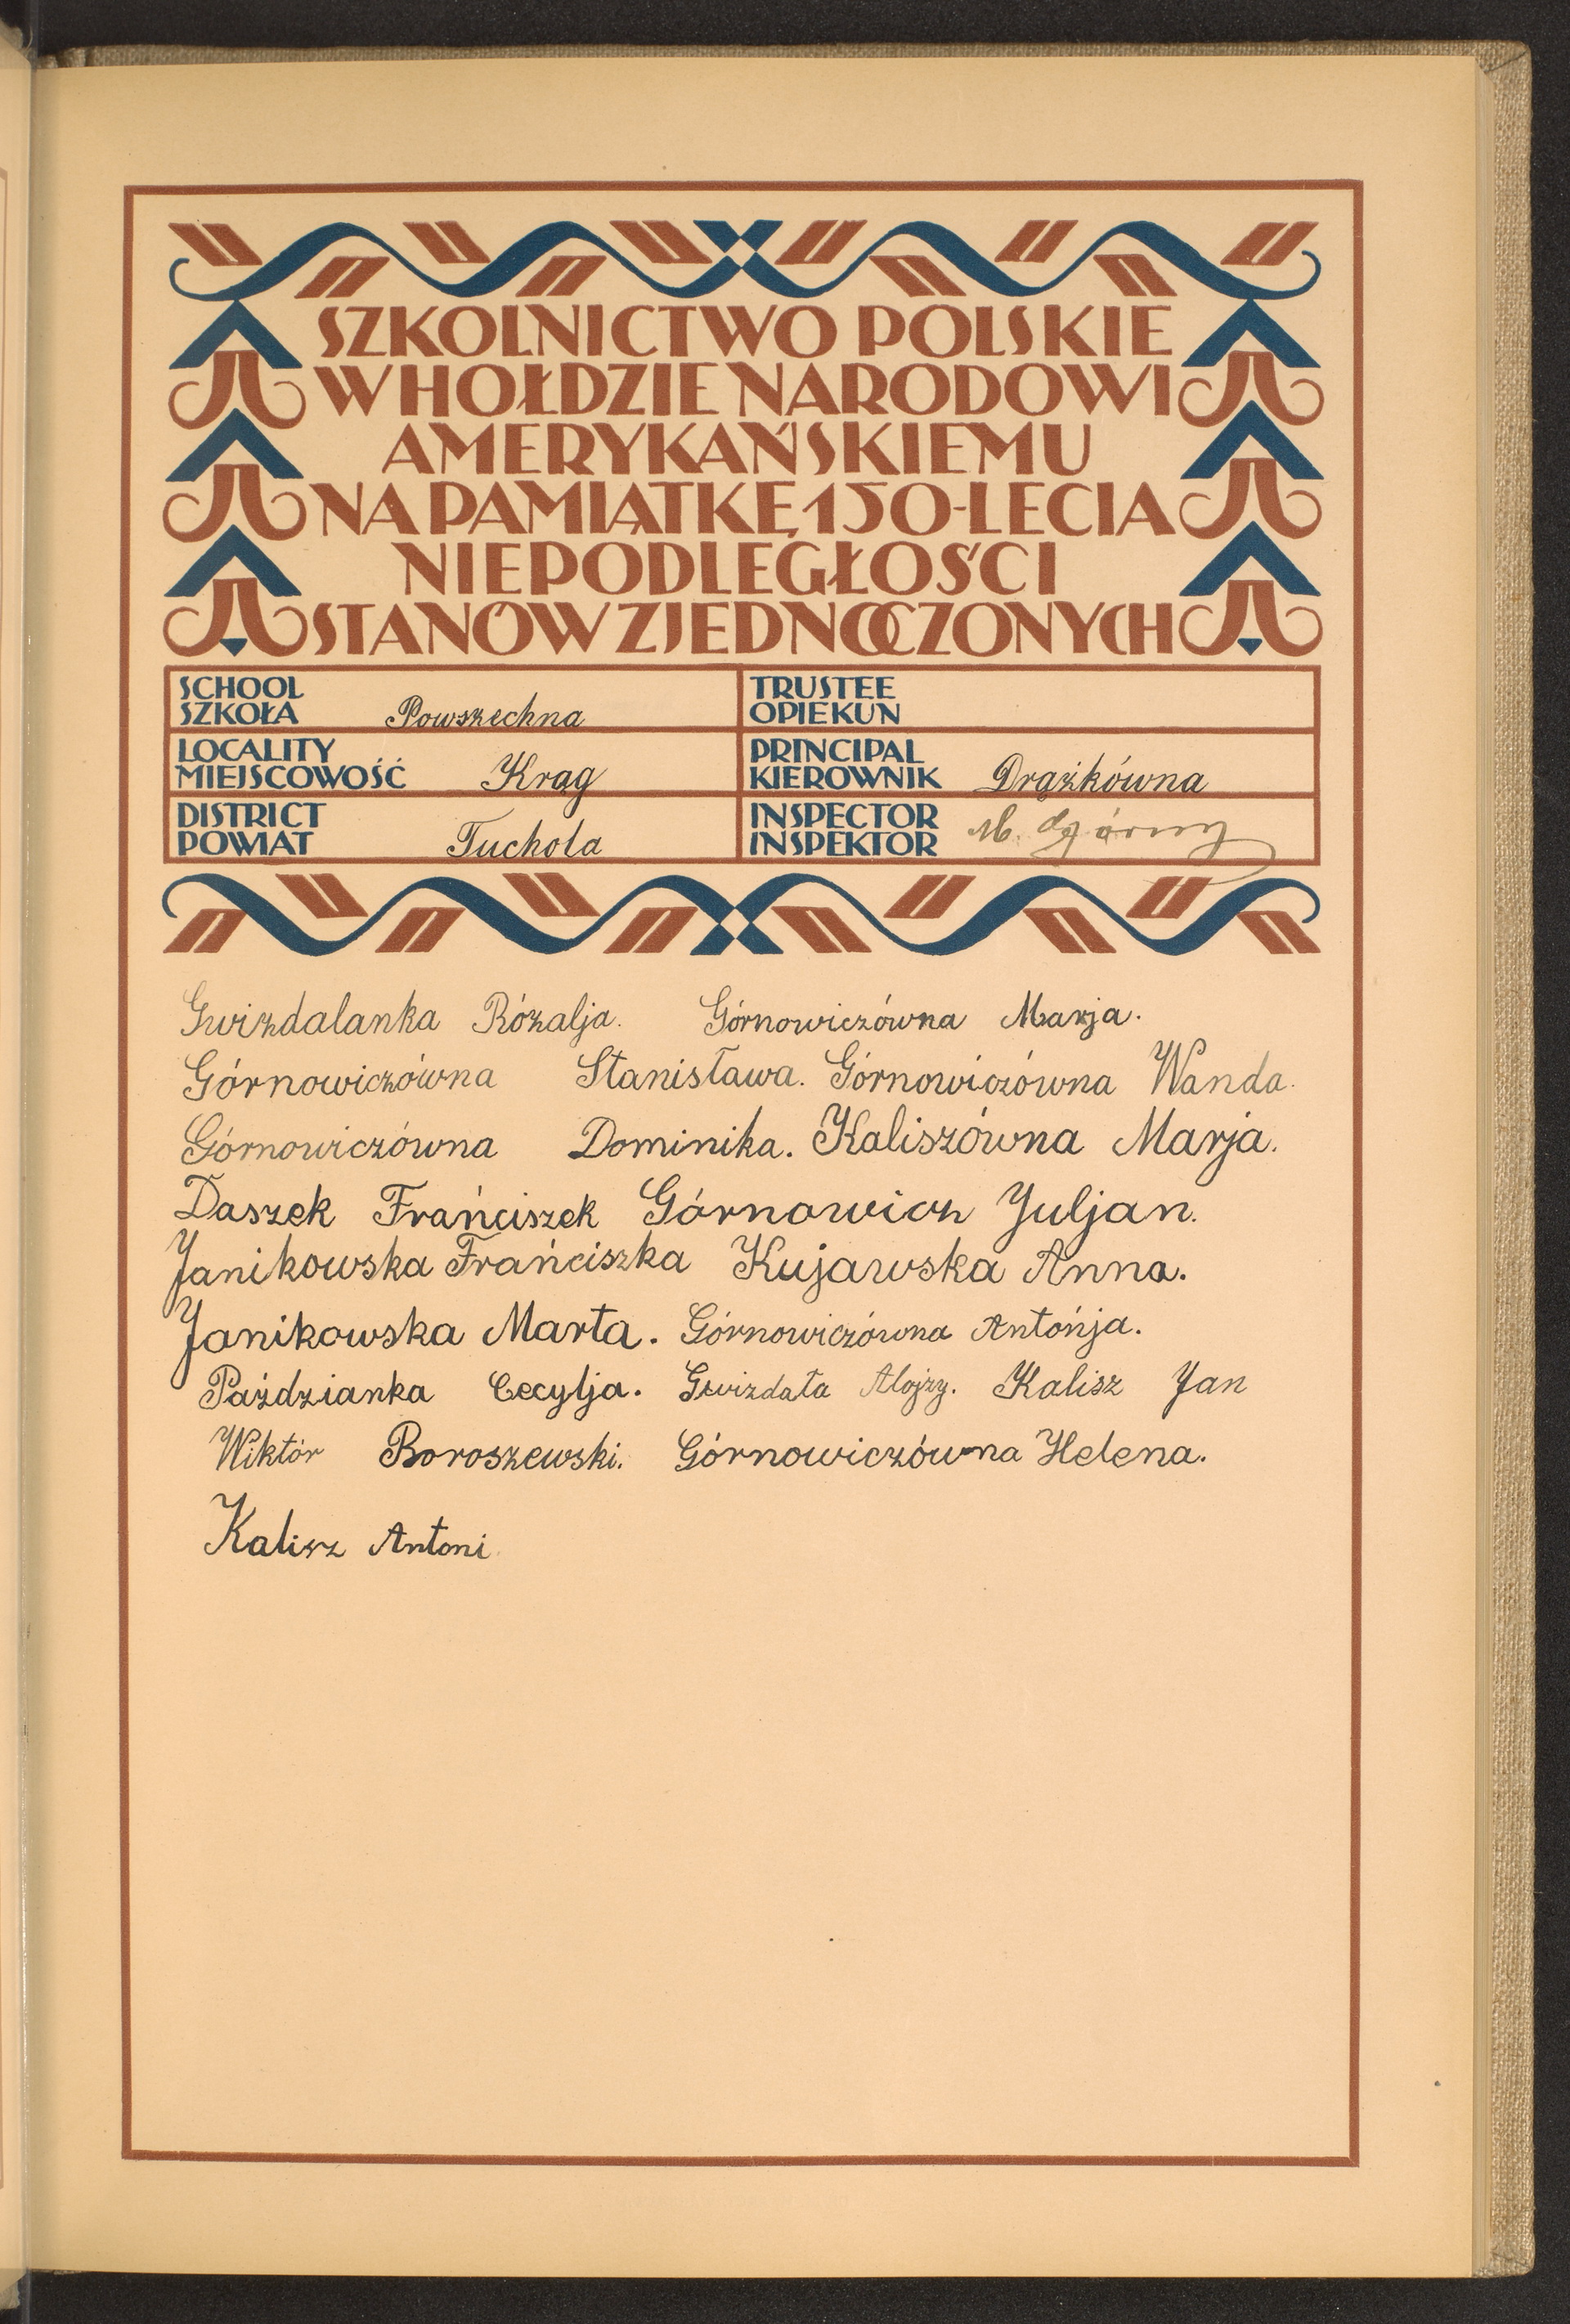 SZKOLNICTWO POLSKIE
W HOŁDZIE NARODOWI
AMERYKAŃSKIEMU
NA PAMIĄTKĘ 150-LECIA
NIEPODLEGŁOŚCI
STANÓW ZJEDNOCZONYCH
SCHOOL
SZKOŁA Powszechna
TRUSTEE
OPIEKUN
LOCALITY
MIEJSCOWOŚĆ Krąg
PRINCIPAL
KIEROWNIK Drążkówna
DISTRICT
POWIAT Tuchola
INSPECTOR
INSPEKTOR M.
Gwizdalanka Rózalja. Górnowiczówna Marja.
Górnowiczówna Stanisława. Górnowiczówna Wanda.
Górnowiczówna Dominika. Kaliszówna Marja.
Daszek Frańciszek Górnowicz Juljan.
Janikowska Frańciszka Kujawska Anna.
Janikowska Marta. Górnowiczówna Antońja.
Paździanka Cecylja. Gwizdała Alojzy. Kalisz Jan
Wiktór Boroszewski. Górnowiczówna Helena.
Kalisz Antoni